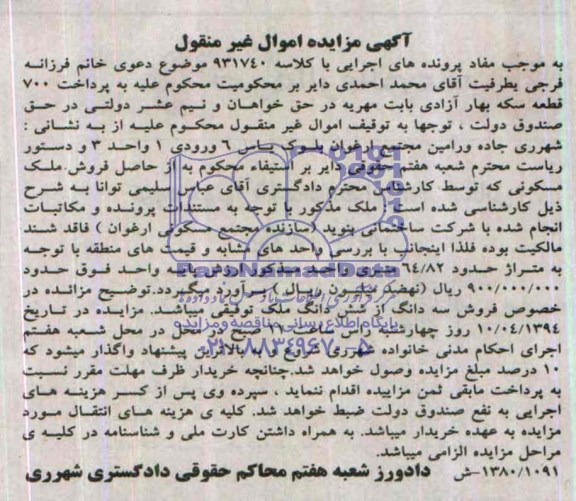 آگهی مزایده اموال غیر منقول
به موجب مفاد پرونده های اجرایی با کلاسه ۹۳۱۷۴۰ موضوع دعوی خانم فرزانه
فرجی بطرفیت آقای محمد احمدی دایر بر محکومیت محکوم علیه به پرداخت ۷۰۰
قطعه سکه بهار آزادی بابت مهریه در حق خواهان و نیم عشر دولتی در حق
صندوق دولت ، توجها به توقیف اموال غیر منقول محکوم علیه از به نشانی :
شهرری جاده ورامین مجتمع ارغوان بلوک یاس ۶ ورودی ۱ واحد ۳ و دستور
ریاست محترم شعبه هفتم حقوقی دایر بر استیفاء محکوم به از حاصل فروش ملک
مسکونی که توسط کارشناس محترم دادگستری آقای عباس سلیمی توانا به شرح
ذیل کارشناسی شده است : ملک مذکور با توجه به مستندات پرونده و مکاتبات
انجام شده با شرکت ساختمانی پنوید (سازنده مجتمع مسکونی ارغوان ) فاقد سند
مالکیت بوده فلذا اینجانب با بررسی واحد های مشابه و قیمت های منطقه با توجه
به متراژ حدود ۶۴/۸۲ متری واحد مذکور ارزش پایه واحد فوق حدود
۹۰۰/۰۰۰/۰۰۰ ریال (نهصد میلیون ریال ) برآورد میگردد.توضیح مزائده در
خصوص فروش سه دانگ از شش دانگ ملک توقیفی میباشد. مزایده در تاریخ
۱۰/۰۴/۱۳۹۴ روز چهارشنبه راس ساعت ۱۱ صبح در محل در محل شعبه هفتم
اجرای احکام مدنی خانواده شهرری شروع و به بالاترین پیشنهاد واگذار میشود که
۱۰ درصد مبلغ مزایده وصول خواهد شد.چنانچه خریدار ظرف مهلت مقرر نسبت
به پرداخت مابقی ثمن مزاییده اقدام ننماید ، سپرده وی پس از کسر هزینه های
اجرایی به نفع صندوق دولت ضبط خواهد شد. کلیه ی هزینه های انتقال مورد
مزایده به عهده خریدار میباشد. به همراه داشتن کارت ملی و شناسنامه در کلیه ی
مراحل مزایده الزامی میباشد.
۱۳۸۰/۱۰۹۱-ش دادورز شعبه هفتم محاکم حقوقی دادگستری شهرری
ParsNamadData
پایگاه اطلاع رسانی مناقصه و مزایده
۰۲۱-۸۸۳۴۹۶۷۰-۵